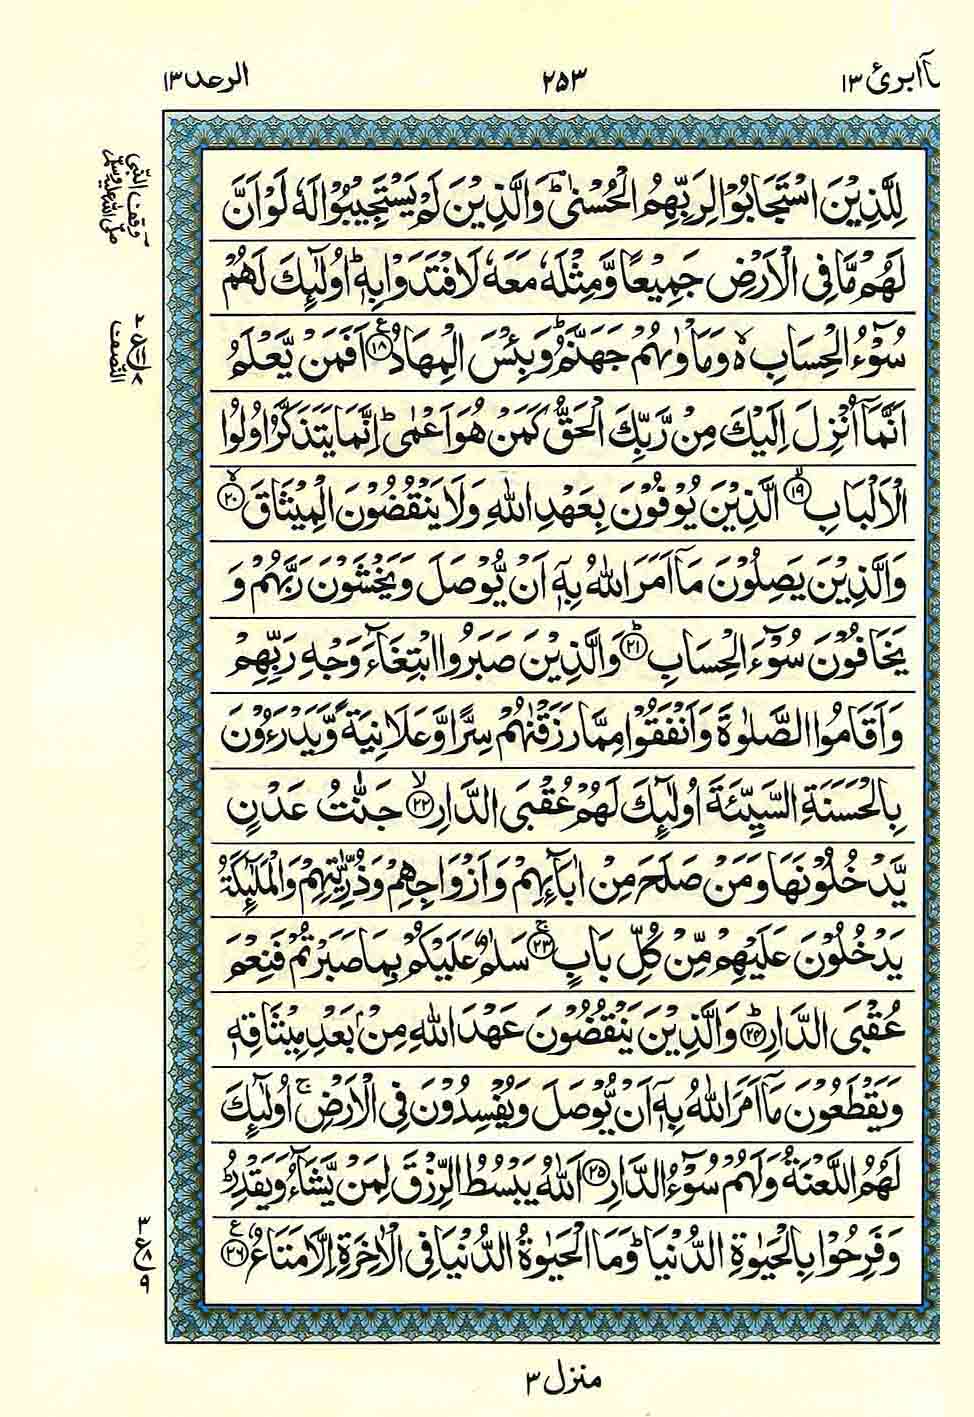 مَآ اُبَرِّئُ ١٣
٢٥٣
الرعد ١٣
لِلَّذِيْنَ اسْتَجَابُوْا لِرَبِّهِمُ الْحُسْنٰىؔؕ وَالَّذِيْنَ لَمْ يَسْتَجِيْبُوْا لَهٗ لَوْ اَنَّ
وقف النبی صلی اللہ علیہ وسلم
لَهُمْ مَّا فِى الْاَرْضِ جَمِيْعًا وَّمِثْلَهٗ مَعَهٗ لَافْتَدَوْا بِهٖؕ اُولٰٓئِكَ لَهُمْ
سُوْٓءُ الْحِسَابِ ۙ وَمَاْوٰىهُمْ جَهَنَّمُؕ وَبِئْسَ الْمِهَادُ ۧ‏﴿۱۸﴾ اَفَمَنْ يَّعْلَمُ
النّصف
اَنَّمَاۤ اُنْزِلَ اِلَيْكَ مِنْ رَّبِّكَ الْحَقُّ كَمَنْ هُوَ اَعْمٰىؕ اِنَّمَا يَتَذَكَّرُ اُولُوا
الْاَلْبَابِۙ‏﴿۱۹﴾ الَّذِيْنَ يُوْفُوْنَ بِعَهْدِ اللّٰهِ وَلَا يَنْقُضُوْنَ الْمِيْثَاقَۙ‏﴿۲۰﴾
وَالَّذِيْنَ يَصِلُوْنَ مَاۤ اَمَرَ اللّٰهُ بِهٖۤ اَنْ يُّوْصَلَ وَيَخْشَوْنَ رَبَّهُمْ وَ
يَخَافُوْنَ سُوْۤءَ الْحِسَابِؕ‏﴿۲۱﴾ وَالَّذِيْنَ صَبَرُوا ابْتِغَآءَ وَجْهِ رَبِّهِمْ
وَاَقَامُوا الصَّلٰوةَ وَاَنْفَقُوْا مِمَّا رَزَقْنٰهُمْ سِرًّا وَّعَلَانِيَةً وَّيَدْرَءُوْنَ
بِالْحَسَنَةِ السَّيِّئَةَ اُولٰٓئِكَ لَهُمْ عُقْبَى الدَّارِۙ‏﴿۲۲﴾ جَنّٰتُ عَدْنٍ
يَّدْخُلُوْنَهَا وَمَنْ صَلَحَ مِنْ اٰبَآئِهِمْ وَاَزْوَاجِهِمْ وَذُرِّيّٰتِهِمْ وَالْمَلٰٓئِكَةُ
يَدْخُلُوْنَ عَلَيْهِمْ مِّنْ كُلِّ بَابٍۚ‏﴿۲۳﴾ سَلٰمٌ عَلَيْكُمْ بِمَا صَبَرْتُمْ فَنِعْمَ
عُقْبَى الدَّارِؕ‏﴿۲۴﴾ وَالَّذِيْنَ يَنْقُضُوْنَ عَهْدَ اللّٰهِ مِنْۢ بَعْدِ مِيْثَاقِهٖ
وَيَقْطَعُوْنَ مَاۤ اَمَرَ اللّٰهُ بِهٖۤ اَنْ يُّوْصَلَ وَيُفْسِدُوْنَ فِى الْاَرْضِۙ اُولٰٓئِكَ
لَهُمُ اللَّعْنَةُ وَلَهُمْ سُوْۤءُ الدَّارِ‏﴿۲۵﴾ اَللّٰهُ يَبْسُطُ الرِّزْقَ لِمَنْ يَّشَآءُ وَيَقْدِرُؕ
وَفَرِحُوْا بِالْحَيٰوةِ الدُّنْيَاؕ وَمَا الْحَيٰوةُ الدُّنْيَا فِى الْاٰخِرَةِ اِلَّا مَتَاعٌ ۧ‏﴿۲۶﴾
٣
ع ٨
٩
منزل ٣